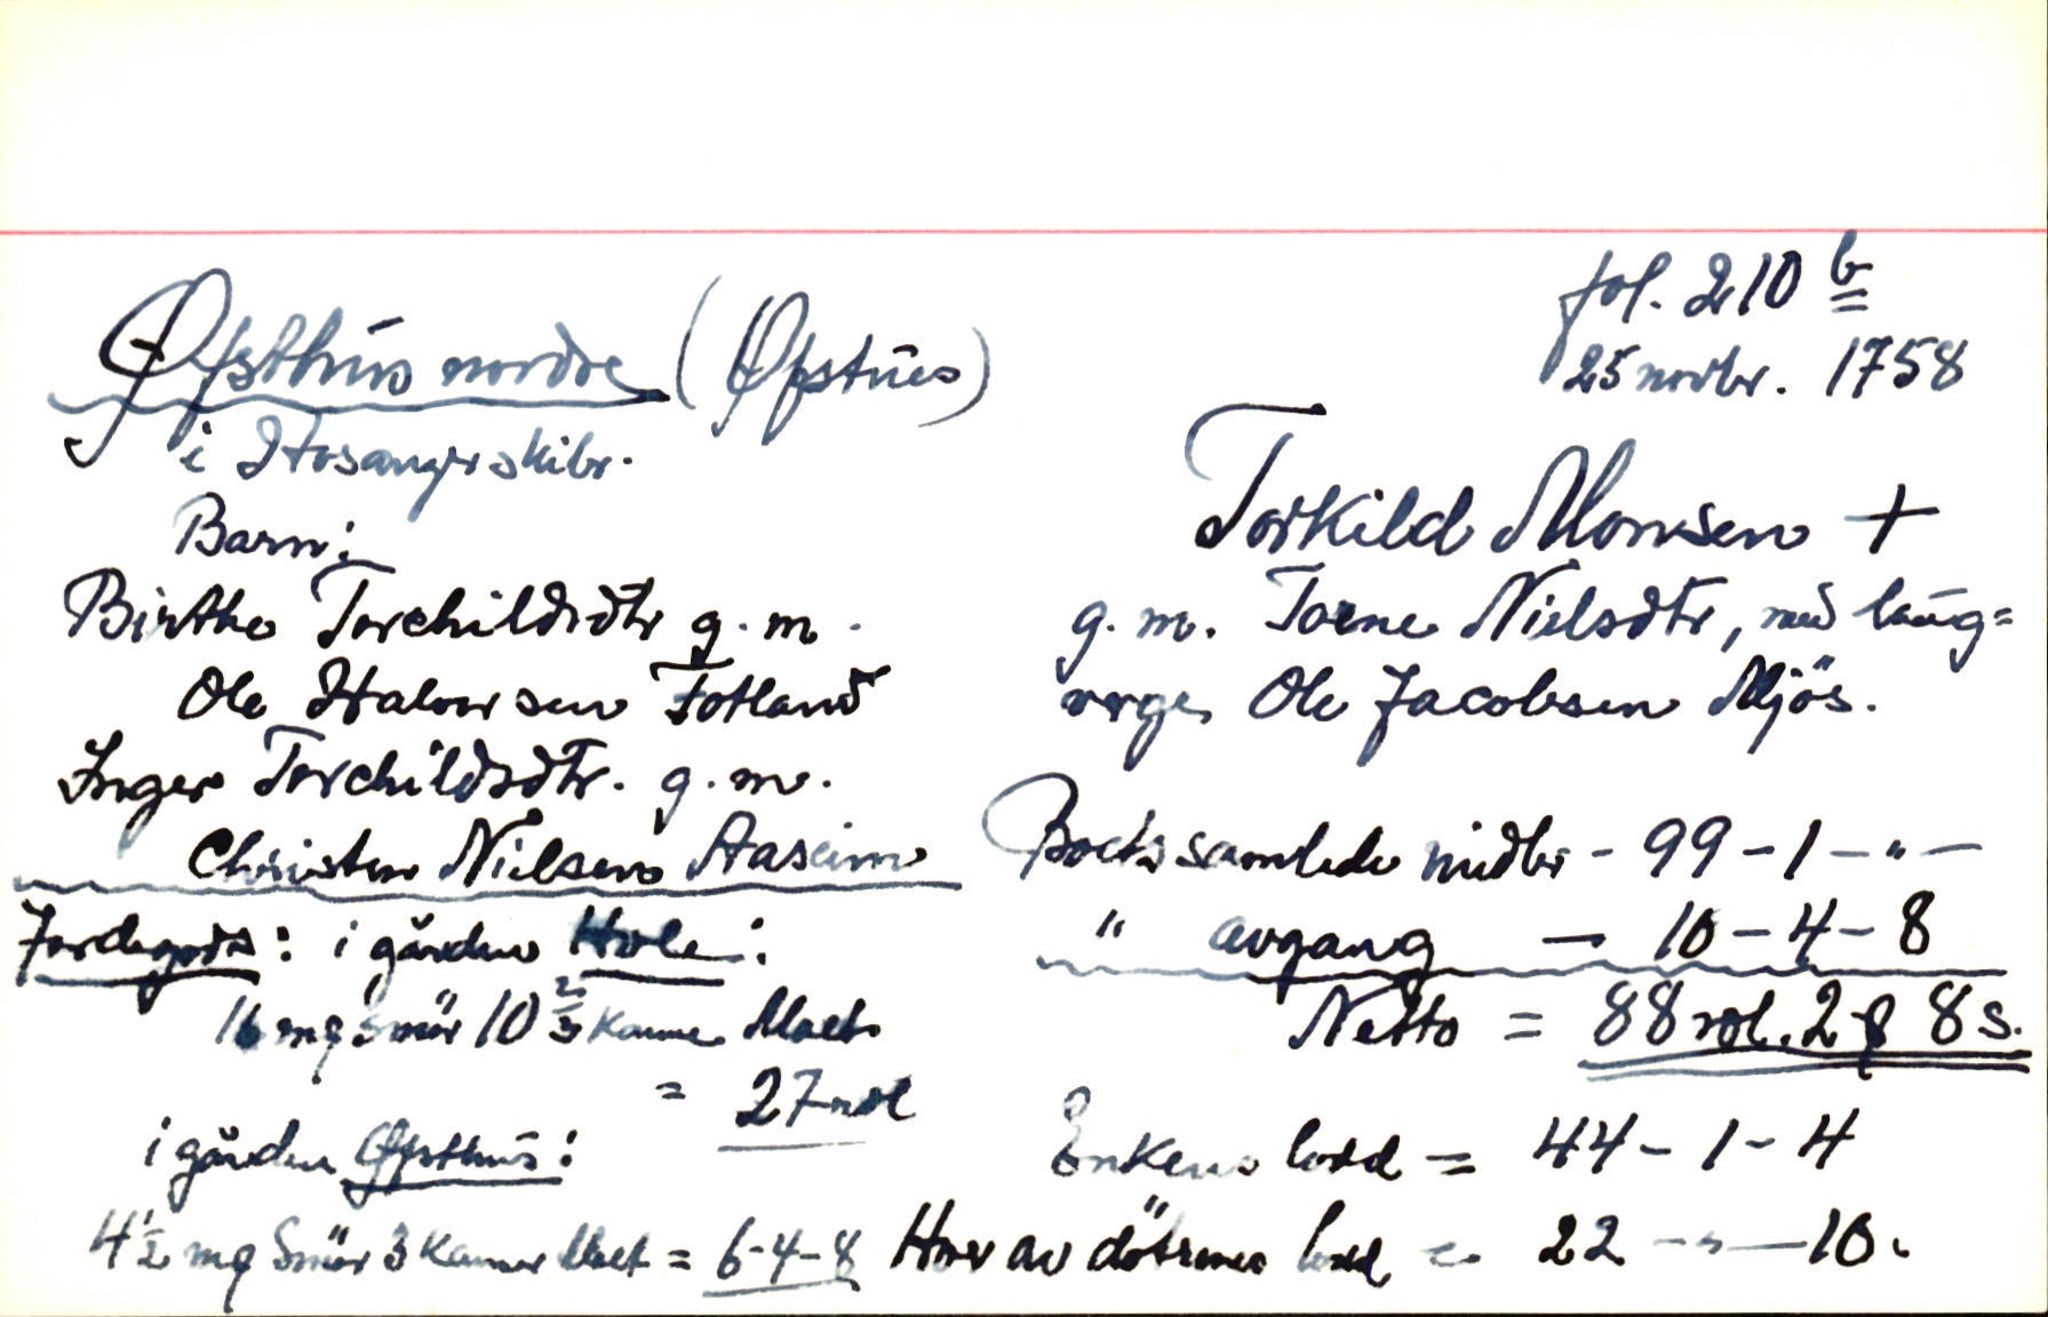 fol. 210 b
25 novbr. 1758
Øfsthús nordre (Øfstúes)
i Hosanger skibr.
Barn:
Birthe Torchildsdtr g. m.
Ole Halvorsen Fotland
Inger Torchildsdtr. g. m.
Christen Nielsen Aaseim
Jordegods: i gården Hole:
16 mg Smör 10 2/3 Kanne Malt
= 27 rdl
i gården Øfsthús:
4 1/2 mg Smör 3 Kanner Malt = 6-4-8
Torkild Monsen +
g. m. Torne Nielsdtr, med laug=
verge, Ole Jacobsen Mjös.
Boets samlede midler - 99 - 1 - " -
" avgang — 10 - 4 - 8
Netto = 88 rdl. 2 ƒ 8 s.
Enkens lodd = 44 - 1 - 4
Hver av döttrenes lodd = 22 - " - 10.